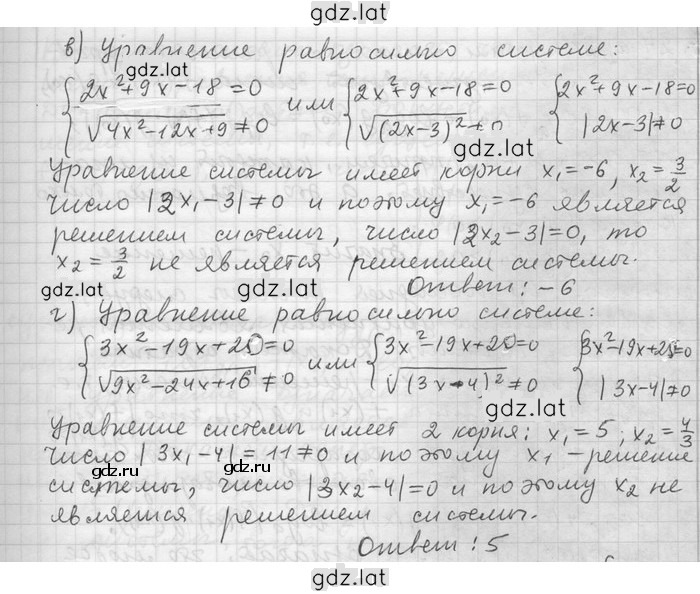 gdz.lat
в) Уравнение равносильно системе:
gdz.lat
{2x²+9x-18=0 или {2x²+9x-18=0 {2x²+9x-18=0
√(4x²-12x+9)≠0 √((2x-3)²)≠0 |2x-3|≠0
gdz.lat
Уравнение системы имеет корни x₁=-6, x₂=3/2
Число |2x₁-3|≠0 и поэтому x₁=-6 является
решением системы, число |2x₂-3|=0, то
x₂=3/2 не является решением системы.
gdz.lat gdz.lat gdz.lat
Ответ: -6
г) Уравнение равносильно системе:
{3x²-19x+20=0 или {3x²-19x+20=0 {3x²-19x+20=0
√(9x²-24x+16)≠0 √((3x-4)²)≠0 |3x-4|≠0
gdz.lat
Уравнение системы имеет 2 корня: x₁=5; x₂=4/3
Число |3x₁-4|=11≠0 и поэтому x₁ - решение
gdz.lat gdz.lat
системы, число |3x₂-4|=0 и поэтому x₂ не
является решением системы.
Ответ: 5
gdz.lat